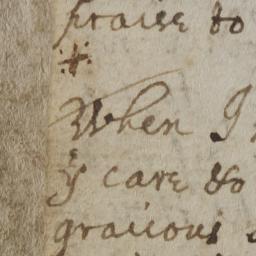 praise to
When I
yͤ care &
gracious